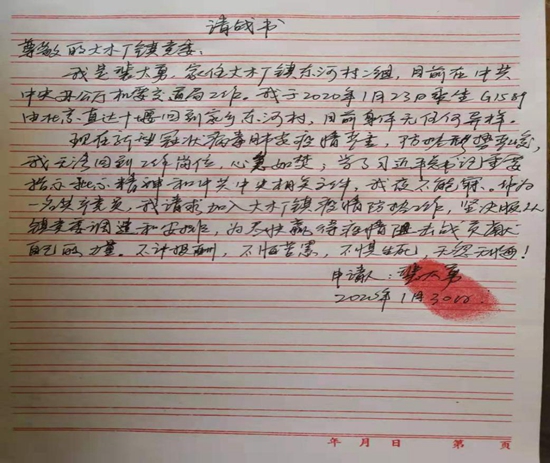 请战书
尊敬的大木厂镇党委:
我是 大勇,家住大木厂镇东河村二组,目前在中共
中央办公厅机要交通局工作。我于2020年1月23日乘坐G1589
由北京直达十堰回到家乡东河村,目前身体无任何异样。
现在新型冠状病毒肺炎疫情严重,防
我无法回到工作岗位,心急如焚;学了习近平总书记重要
指示批示精神和中共中央相关文件,我夜不能寐。作为
一名共产党员,我请求加入大木厂镇疫情防控工作,坚决服从
镇党委调遣和安排,为尽快赢得疫情阻击战贡献
自己的力量。不计报酬,不怕苦累,不惧生死,无怨无悔!
申请人: 大勇
2020年1月30日
年 月 日 第 页